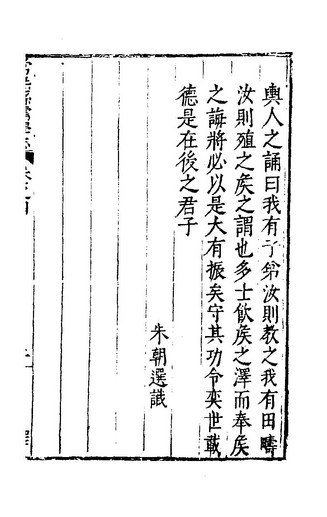 輿人之誦曰我有子弟汝則教之我有田疇
汝則殖之矦之謂也多士飲矦之澤而奉矦
之誨將必以是大有振矣守其功令奕世載
德是在後之君子
朱朝選識